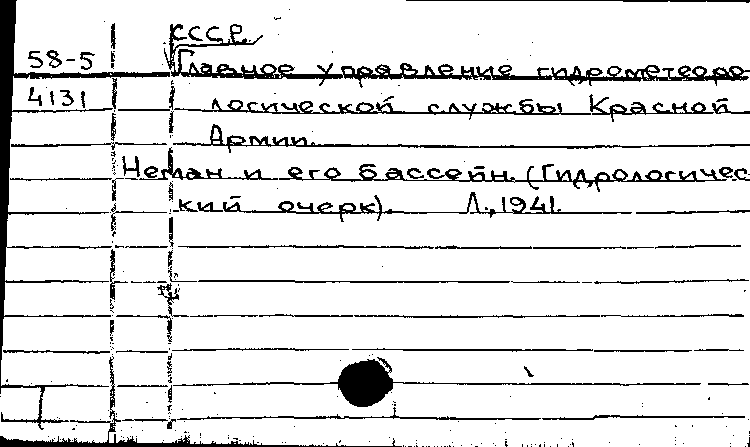 С.С.С.Р.
58-5 Главное управление гидрометеоро-
4131 логической службы Красной
Армии.
Неман и его бассейн. (Гидрологичес-
кий очерк). Л., 1941.